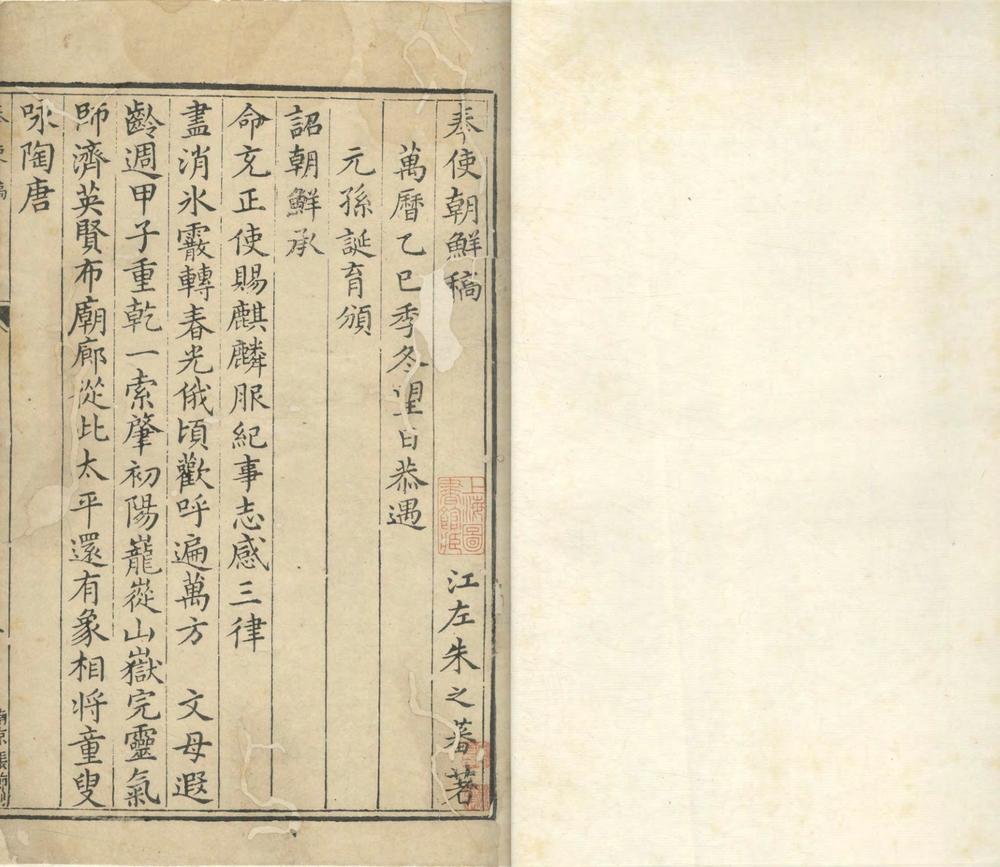 奉使朝鮮稿
上海圖書館藏
江左朱之蕃著
萬曆乙巳季冬望日恭遇
元孫誕育頒
詔朝鮮承
命充正使賜麒麟服紀事志感三律
盡消氷霰轉春光俄頃歡呼遍萬方 文母遐
齡週甲子重乾一索肇初陽巃嵷山嶽完靈氣
師濟英賢布廟廊從此太平還有象相將童叟
咏陶唐